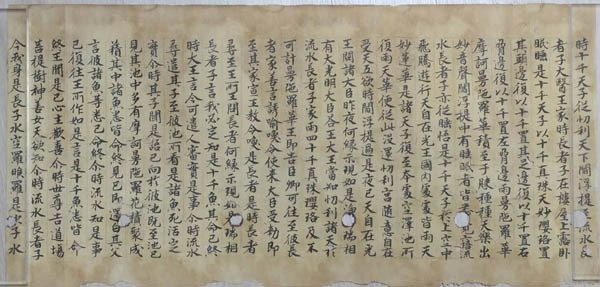 時十千天子從忉利天下閻浮提至流水長
者子大醫王家時長者子在樓屋上露卧
眠睡是十千天子以十千真珠天妙瓔珞置
其頭邊復以十千置其足邊復以十千置右
脅邊復以十千置左脅邊雨曼陀羅華
摩訶曼陀羅華積至于膝種種天樂出
妙音聲閻浮提中有睡眠者皆悉覺寤流
水長者子亦從睡寤是十千天子於上空中
飛騰遊行天自在光王國內處處皆雨天
妙蓮華是諸天子復至本處空澤池所
復雨天華便從此沒還忉利宮隨意自在
受天五欲時閻浮提過是夜已天自在光
王問諸大臣昨夜何緣示現如是淨妙瑞相
有大光明大臣答王大王當知忉利諸天於
流水長者子家雨四十千真珠瓔珞及不
可計曼陀羅華王即告臣卿可往至彼長
者家善言誘喻喚令使來大臣受勅即
至其家宣王教令喚是長者是時長者
尋至王所王問長者何緣示現如是瑞相
長者子言我必定知是十千魚其命已終
時大王言今可遣人審實是事尒時流水
尋遣其子至彼池所看是諸魚死活定
實尒時其子聞是語已向於彼池既至池已
見其池中多有摩訶曼陀羅華積聚成
𧂐其中諸魚悉皆命終見已即還白其父
言彼諸魚等悉已命終尒時流水知是事
已復往王所作如是言是十千魚悉皆命
終王聞是已心生歡喜尒時世尊告道場
菩提樹神善女天欲知尒時流水長者子
今我身是長子水空羅睺羅是次子水